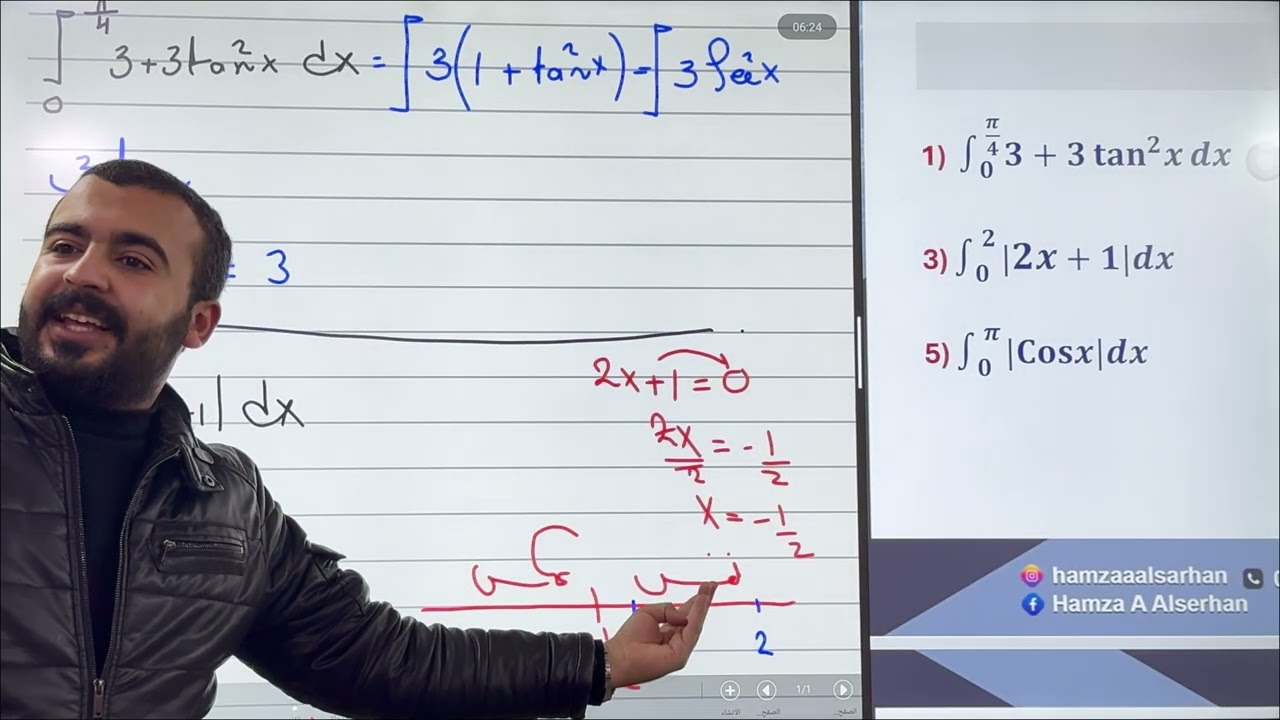 06:24
∫₀^{π/4} 3+3tan²x dx = ∫ 3(1 + tan²x) = ∫ 3 sec²x
= 3
+1| dx
2x+1=0
2x/2 = -1/2
x = -1/2
عكس
نفس
2
1/1
1) ∫₀^{π/4} 3 + 3 tan²x dx
3) ∫₀² |2x + 1|dx
5) ∫₀^π |Cosx|dx
hamzaaalsarhan
Hamza A Alserhan